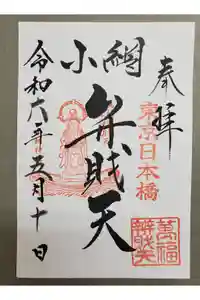 奉拝
東京日本橋
小網
弁財天
令和六年五月十日
萬福
辨財天